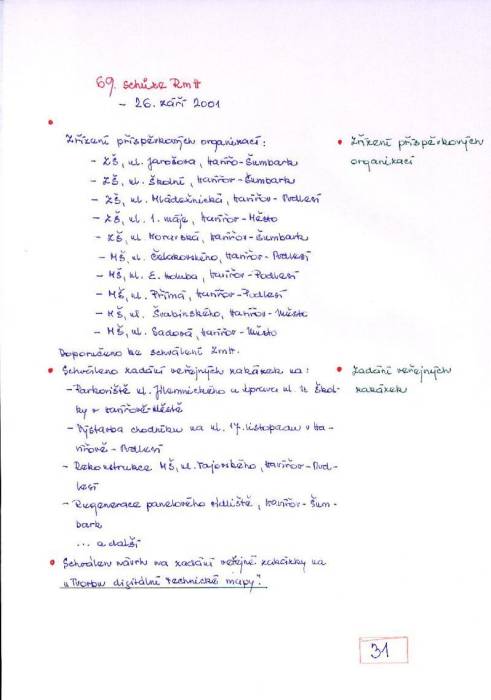 69. schůze RmH
- 26. září 2001
Zřízení příspěvkových organizací:
• Zřízení příspěvkových
organizací
- ZŠ, ul. Jarošova, Havířo-Šumbark
- ZŠ, ul. Školní, Havířov-Šumbark
- ZŠ, ul. Mládežnická, Havířov-Podlesí
- ZŠ, ul. 1. máje, Havířov-Město
- ZŠ, ul. Moravská, Havířov-Šumbark
- MŠ, ul. Čelakovského, Havířov-Podlesí
- MŠ, ul. E. Holuba, Havířov-Podlesí
- MŠ, ul. Přímá, Havířov-Podlesí
- MŠ, ul. Švabinského, Havířov-Město
- MŠ, ul. Sadová, Havířov-Město
Doporučeno ke schválení ZmH.
• Schváleno zadání veřejných zakázek na:
• Zadání veřejných
zakázek
- Parkoviště ul. Jilemnického a úprava ul. U Škol-
ky v Havířově-Městě
- Výstavba chodníku na ul. 17. listopadu v Ha-
vířově-Podlesí
- Rekonstrukce MŠ, ul. Tajovského, Havířov-Pod-
lesí
- Regenerace panelového sídliště, Havířov-Šum-
bark
... a další
• Schválen návrh na zadání veřejné zakázky na
"Tvorbu digitální technické mapy".
31